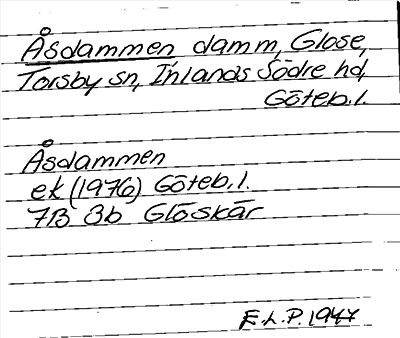 Åsdammen damm, Glose,
Torsby sn, Inlands Södre hd,
Göteb. l.
Åsdammen
ek (1976) Göteb. l.
7B 3b Glöskär
F.L.P. 1947